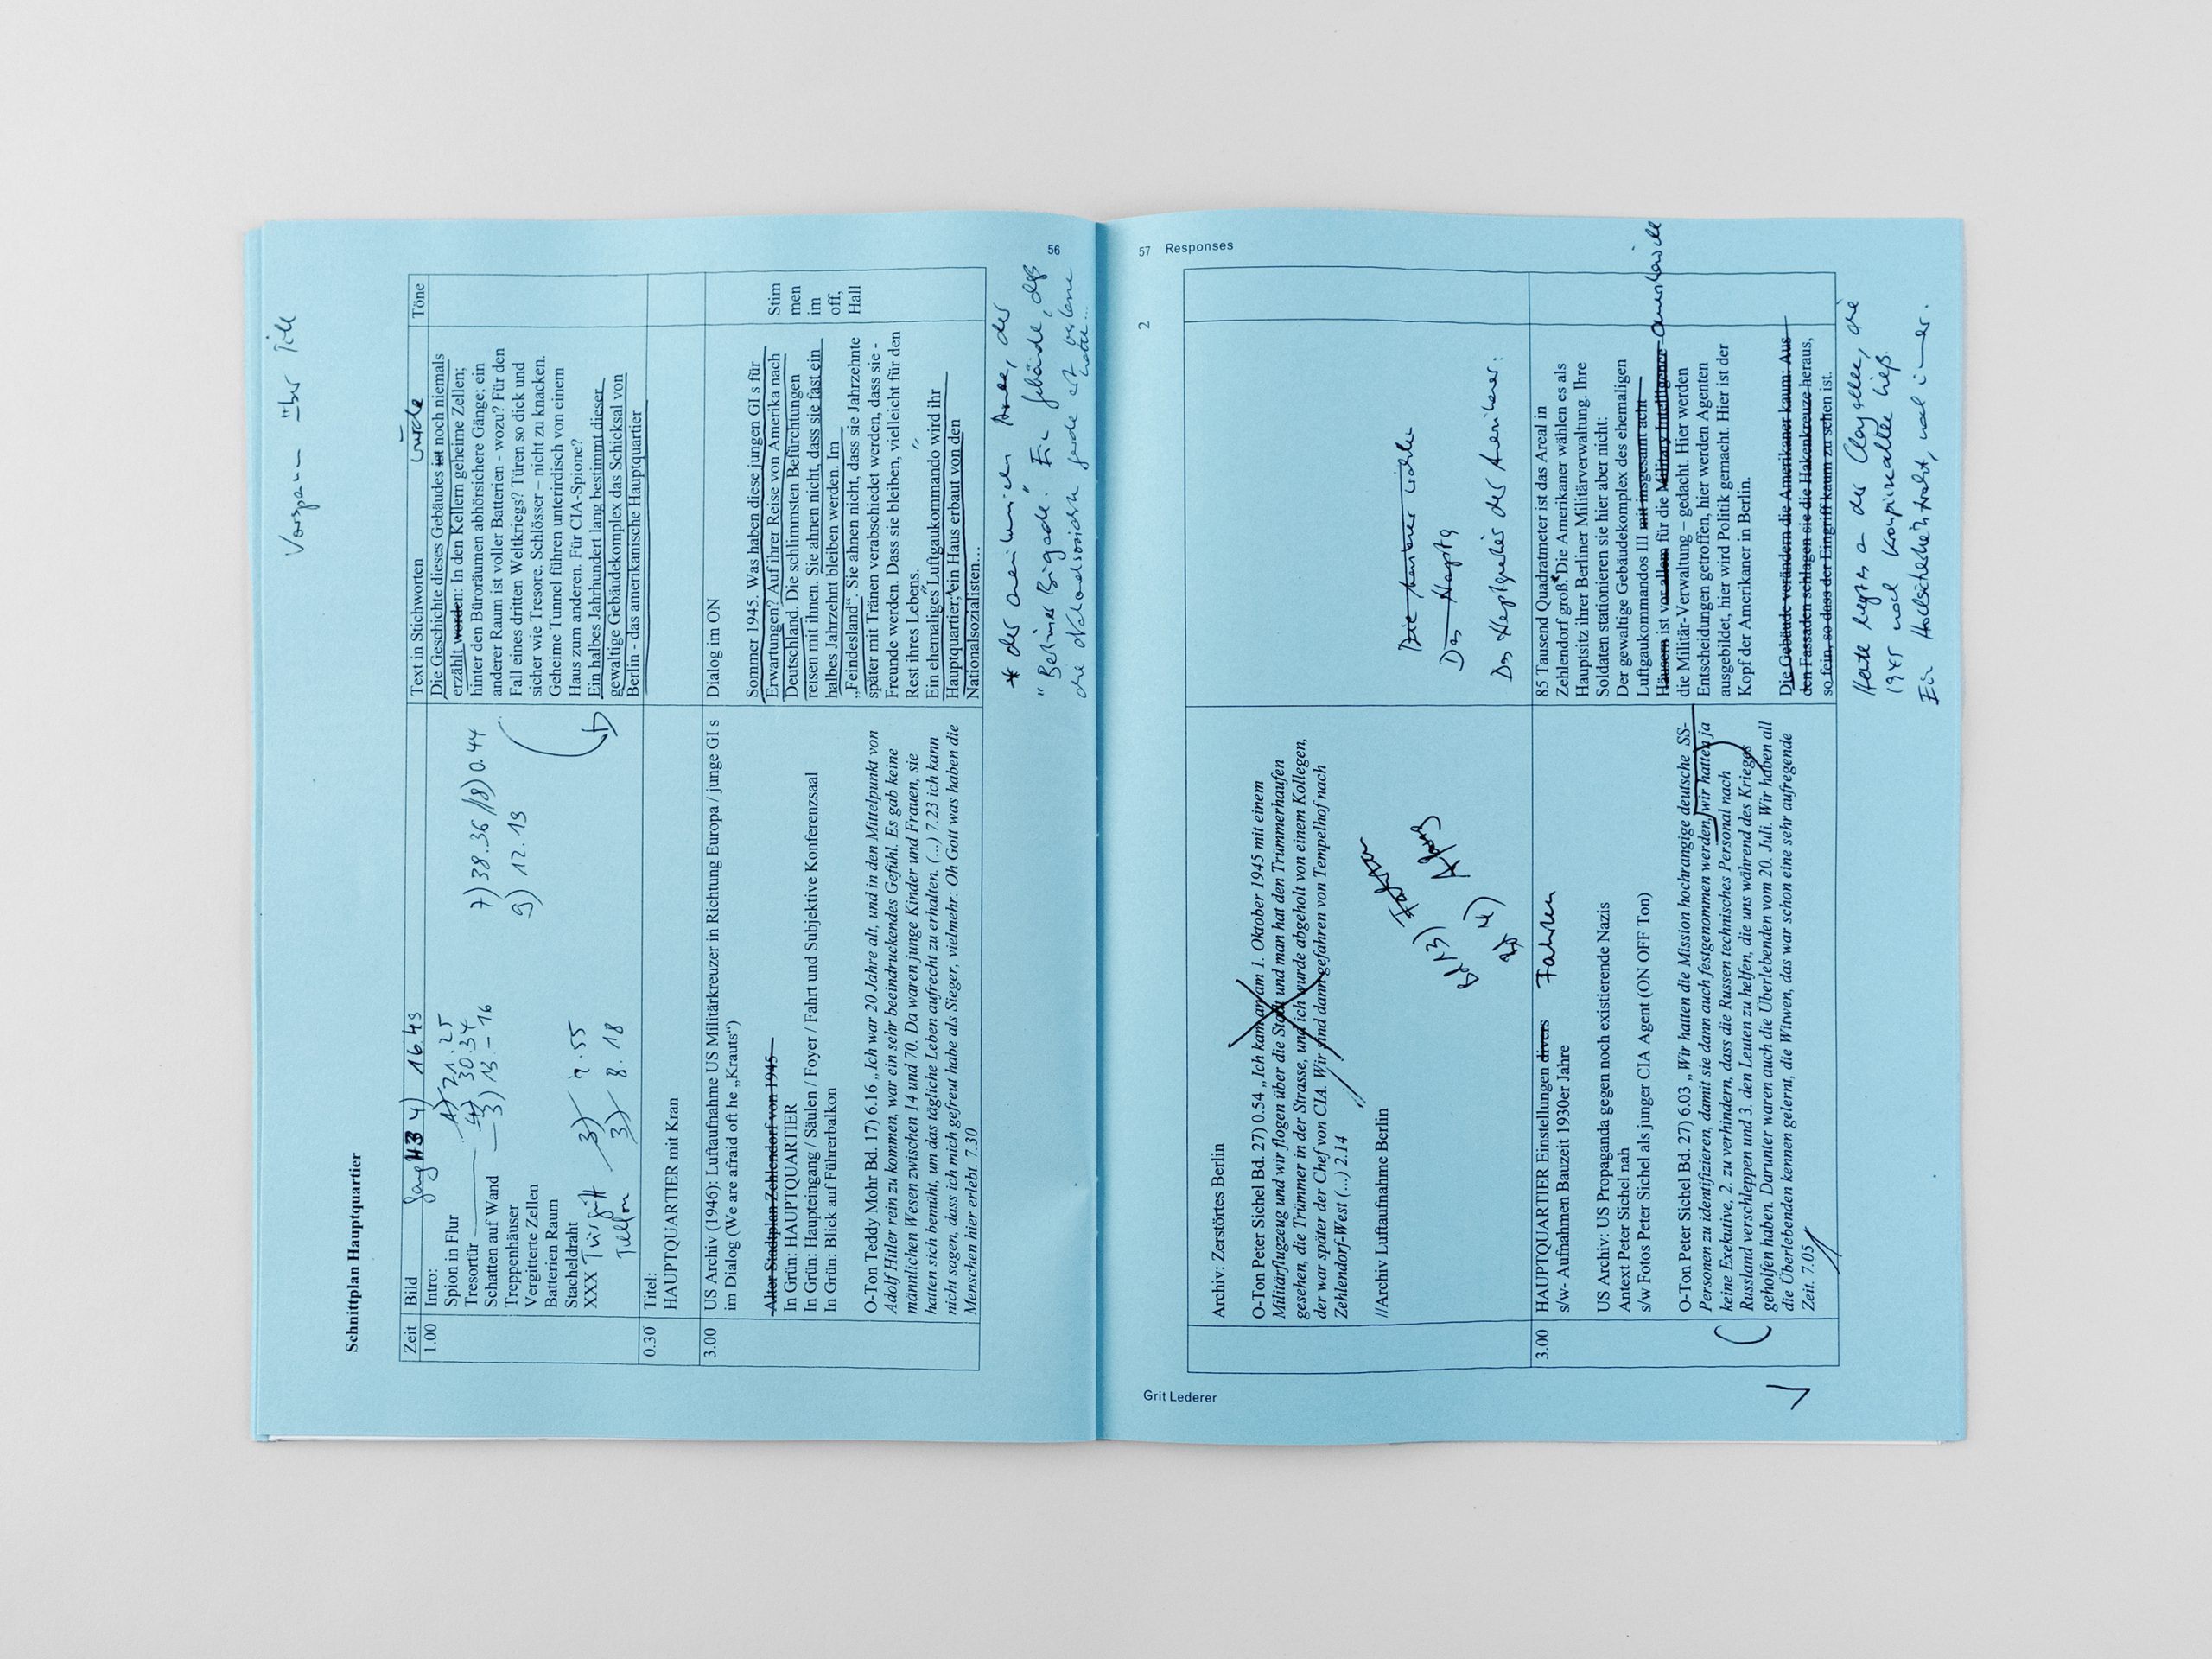 56
Vorspann über Titel
Schnittplan Hauptquartier
Zeit
Bild
Text in Stichworten
Töne
4) 16.43
wurde
1.00
Intro:
Spion in Flur
Tresortür
Schatten auf Wand
Treppenhäuser
Vergitterte Zellen
Batterien Raum
Stacheldraht
XXX
Telefon
21.25
30.34
3) 13.-16
3) 7.55
3) 8.18
7) 38.36 /8) 0.44
9) 12.13
Die Geschichte dieses Gebäudes ist noch niemals
erzählt worden: In den Kellern geheime Zellen;
hinter den Büroräumen abhörsichere Gänge; ein
anderer Raum ist voller Batterien - wozu? Für den
Fall eines dritten Weltkriegs? Türen so dick und
sicher wie Tresore. Schlösser – nicht zu knacken.
Geheime Tunnel führen unterirdisch von einem
Haus zum anderen. Für CIA-Spione?
Ein halbes Jahrhundert lang bestimmt dieser
gewaltige Gebäudekomplex das Schicksal von
Berlin - das amerikanische Hauptquartier
0.30
Titel:
HAUPTQUARTIER mit Kran
3.00
US Archiv (1946): Luftaufnahme US Militärkreuzer in Richtung Europa / junge GI s
im Dialog (We are afraid oft he „Krauts“)
Alter Stadtplan Zehlendorf von 1945
In Grün: HAUPTQUARTIER
In Grün: Haupteingang / Säulen / Foyer / Fahrt und Subjektive Konferenzsaal
In Grün: Blick auf Führerbalkon
O-Ton Teddy Mohr Bd. 17) 6.16 „Ich war 20 Jahre alt, und in den Mittelpunkt von
Adolf Hitler rein zu kommen, war ein sehr beeindruckendes Gefühl. Es gab keine
männlichen Wesen zwischen 14 und 70. Da waren junge Kinder und Frauen, sie
hatten sich bemüht, um das tägliche Leben aufrecht zu erhalten. (...) 7.23 ich kann
nicht sagen, dass ich mich gefreut habe als Sieger, vielmehr: Oh Gott was haben die
Menschen hier erlebt. 7.30
Dialog im ON
Sommer 1945. Was haben diese jungen GI s für
Erwartungen? Auf ihrer Reise von Amerika nach
Deutschland. Die schlimmsten Befürchtungen
reisen mit ihnen. Sie ahnen nicht, dass sie fast ein
halbes Jahrzehnt bleiben werden. Im
„Feindesland“. Sie ahnen nicht, dass sie Jahrzehnte
später mit Tränen verabschiedet werden, dass sie -
Freunde werden. Dass sie bleiben, vielleicht für den
Rest ihres Lebens.
Ein ehemaliges Luftgaukommando wird ihr
Hauptquartier; ein Haus erbaut von den
Nationalsozialisten...
Stim
men
im
off,
Hall
* der amerikanischen Armee, der
"Berliner Brigade". Ein Gebäude, das
die Nationalsozialisten gerade erst verlassen
hatten...
57 Responses
2
Grit Lederer
Archiv: Zerstörtes Berlin
O-Ton Peter Sichel Bd. 27) 0.54 „Ich kam am 1. Oktober 1945 mit einem
Militärflugzeug und wir flogen über die Stadt und man hat den Trümmerhaufen
gesehen, die Trümmer in der Strasse, und ich wurde abgeholt von einem Kollegen,
der war später der Chef von CIA. Wir sind dann gefahren von Tempelhof nach
Zehlendorf-West (...) 2.14
//Archiv Luftaufnahme Berlin
Das Hauptq
Das Hauptquartier der Amerikaner:
3.00
HAUPTQUARTIER Einstellungen divers Fahrten
s/w- Aufnahmen Bauzeit 1930er Jahre
US Archiv: US Propaganda gegen noch existierende Nazis
Antext Peter Sichel nah
s/w Fotos Peter Sichel als junger CIA Agent (ON OFF Ton)
O-Ton Peter Sichel Bd. 27) 6.03 „Wir hatten die Mission hochrangige deutsche SS-
Personen zu identifizieren, damit sie dann auch festgenommen werden, wir hatten ja
keine Exekutive, 2. zu verhindern, dass die Russen technisches Personal nach
Russland verschleppen und 3. den Leuten zu helfen, die uns während des Krieges
geholfen haben. Darunter waren auch die Überlebenden vom 20. Juli. Wir haben all
die Überlebenden kennen gelernt, die Witwen, das war schon eine sehr aufregende
Zeit. 7.05
85 Tausend Quadratmeter ist das Areal in
Zehlendorf groß. Die Amerikaner wählen es als
Hauptsitz ihrer Berliner Militärverwaltung. Ihre
Soldaten stationieren sie hier aber nicht:
Der gewaltige Gebäudekomplex des ehemaligen
Luftgaukommandos III mit insgesamt acht
Häusern ist vor allem für die Military Intelligence - amerikanische
die Militär-Verwaltung – gedacht. Hier werden
Entscheidungen getroffen, hier werden Agenten
ausgebildet, hier wird Politik gemacht. Hier ist der
Kopf der Amerikaner in Berlin.
Die Gebäude verändern die Amerikaner kaum: Aus
den Fassaden schlagen sie die Hakenkreuze heraus,
so fein, so dass der Eingriff kaum zu sehen ist.
Heute liegt es an der Clayallee, die
1945 noch Kronprinzenallee hieß.
Ein Hochsicherheitstrakt, noch immer.